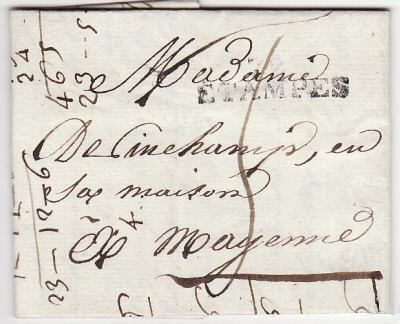 Madame
ETAMPES
De Cinchamp, en
Sa maison
A Mayenne
4
24
465
23-5
23-12-6